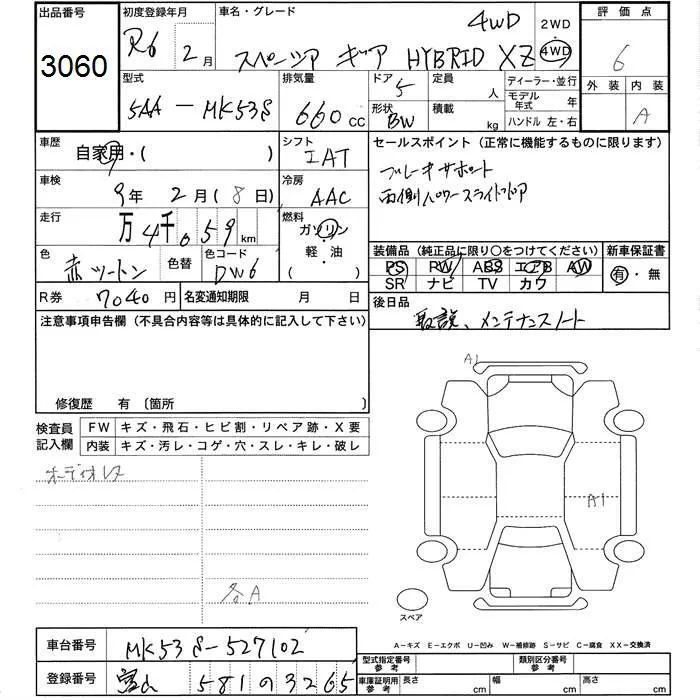 出品番号 初度登録年月 車名・グレード 4WD 2WD 評価点
3060 R6年 2月 スペーシア ギア HYBRID XZ 4WD 6
型式 排気量 ドア 5 定員 人 ディーラー・並行 外装 内装
5AA-MK53S 660cc 形状 BW 積載 kg モデル年式 年 A
ハンドル 左・右
車歴 自家用・( ) シフト IAT セールスポイント(正常に機能するものに限ります)
車検 9年 2月(8日) 冷房 AAC ブレーキサポート
両側パワースライドドア
走行 万4千059km 燃料 ガソリン
軽・油
( )
色 赤ツートン 色替 色コード DW6
装備品(純正品に限り○をつけてください) 新車保証書
PS RW ABS エアB AW 有・無
SR ナビ TV カワ
R券 7040円 名変通知期限 月 日 後日品
取説、メンテナンスノート
注意事項申告欄(不具合内容等は具体的に記入して下さい)
修復歴 有 〔箇所 〕
A1
検査員記入欄 FW キズ・飛石・ヒビ割・リペア跡・X要
内装 キズ・汚レ・コゲ・穴・スレ・キレ・破レ
オーディオレス
A1
各A
スペア
車台番号 MK53S-527102
A-キズ E-エクボ U-凹み W-補修跡 S-サビ C-腐食 XX-交換済
型式指定番号 参考 類別区分番号 参考
登録番号 富山 581 の 3265
車庫証明用 参考 長さ cm 幅 cm 高さ cm